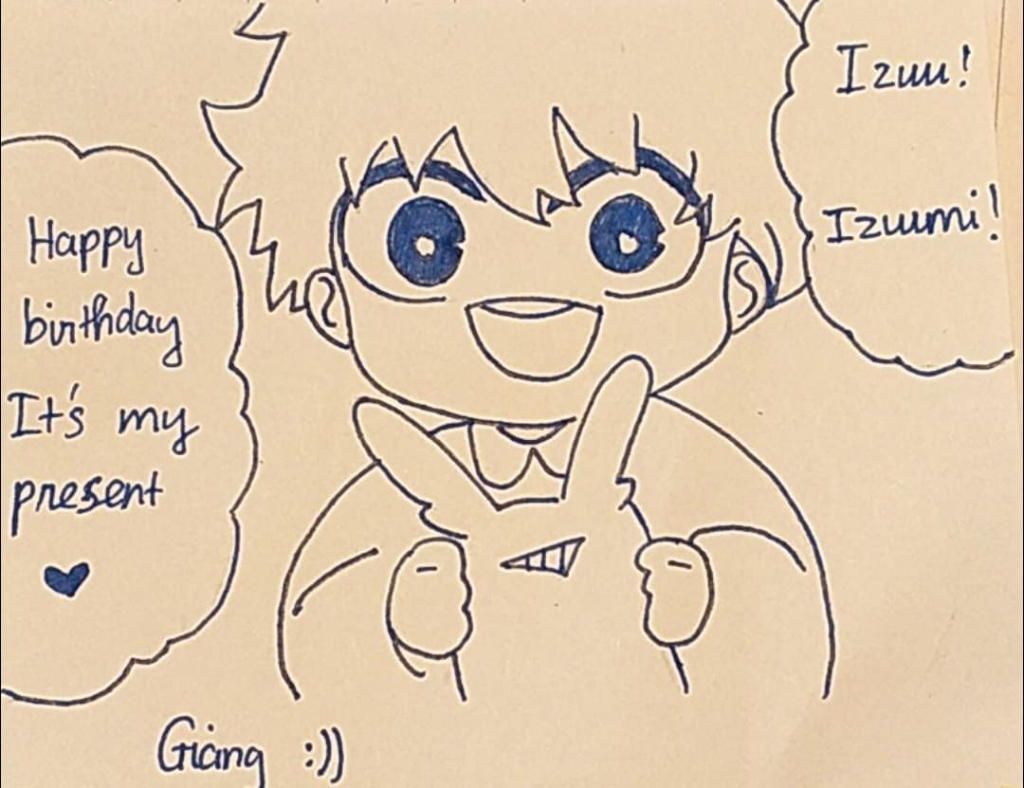 Happy
birthday
It's my
present
Izuu!
Izuumi!
Giang :))